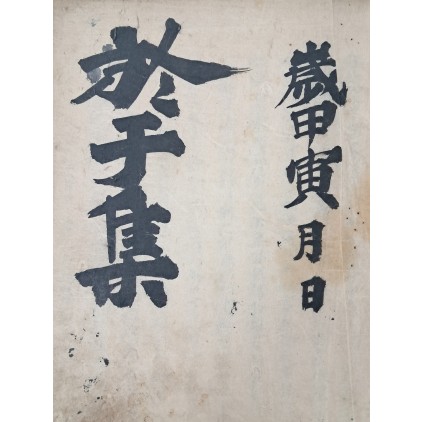 歲甲寅月日
於于集